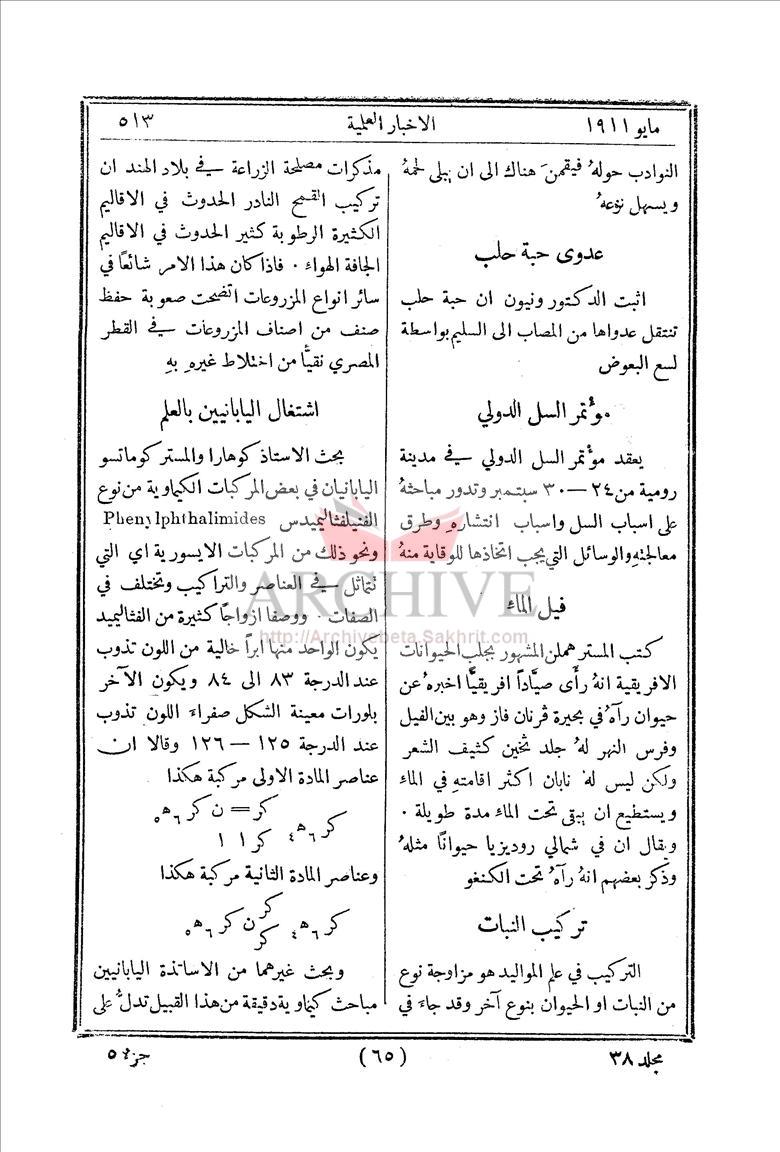 مايو ١٩١١
الاخبار العلمية
٥١٣
النوادب حولهُ فيقمنَ هناك الى ان يبلى لحمهُ
ويسهل نزعهُ
عدوى حبة حلب
اثبت الدكتور ونيون ان حبة حلب
تنتقل عدواها من المصاب الى السليم بواسطة
لسع البعوض
موٴتمر السل الدولي
يعقد موٴتمر السل الدولي في مدينة
رومية من ٢٤ — ٣٠ سبتمبر وتدور مباحثهُ
على اسباب السل واسباب انتشاره وطرق
معالجتهِ والوسائل التي يجب اتخاذها للوقاية منهُ
فيل الماء
كتب المستر هملن المشهور بجلب الحيوانات
الافريقية انهُ رأى صيَّاداً افريقيًّا اخبرهُ عن
حيوان رآهُ في بحيرة فرنان فاز وهو بين الفيل
وفرس النهر لهُ جلد ثخين كثيف الشعر
ولكن ليس لهُ نابان اكثر اقامتهِ في الماء
ويستطيع ان يبقى تحت الماء مدة طويلة .
ويقال ان في شمالي روديزيا حيوانًا مثلهُ
وذكر بعضهم انهُ رآهُ تحت الكنغو
تركيب النبات
التركيب في علم المواليد هو مزاوجة نوع
من النبات او الحيوان بنوع آخر وقد جاء في
مذكرات مصلحة الزراعة في بلاد الهند ان
تركيب القمح النادر الحدوث في الاقاليم
الكثيرة الرطوبة كثير الحدوث في الاقاليم
الجافة الهواء . فاذا كان هذا الامر شائعًا في
سائر انواع المزروعات اتضحت صعوبة حفظ
صنف من اصناف المزروعات في القطر
المصري نقيًّا من اختلاط غيرهِ بهِ
اشتغال اليابانيين بالعلم
بحث الاستاذ كوهارا والمستر كوماتسو
اليابانيان في بعض المركبات الكيماوية من نوع
الفنيلفثاليميدس Phenylphthalimides
ونحو ذلك من المركبات الايسورية اي التي
تتماثل في العناصر والتراكيب وتختلف في
الصفات . ووصفا ازواجًا كثيرة من الفثاليميد
يكون الواحد منها ابراً خالية من اللون تذوب
عند الدرجة ٨٣ الى ٨٤ ويكون الآخر
بلورات معينة الشكل صفراء اللون تذوب
عند الدرجة ١٢٥ — ١٢٦ وقالا ان
عناصر المادة الاولى مركبة هكذا
كر = ن كر ٦ ه ٥
كر ٦ ه ٤
كر ا ا
وعناصر المادة الثانية مركبة هكذا
كر
كر ٦ ه ٤ ن كر ٦ ه ٥
كر
وبحث غيرهما من الاساتذة اليابانيين
مباحث كيماوية دقيقة من هذا القبيل تدلُّ على
مجلد ٣٨
(٦٥)
جزء ٥
ARCHIVE
http://Archivebeta.Sakhrit.com